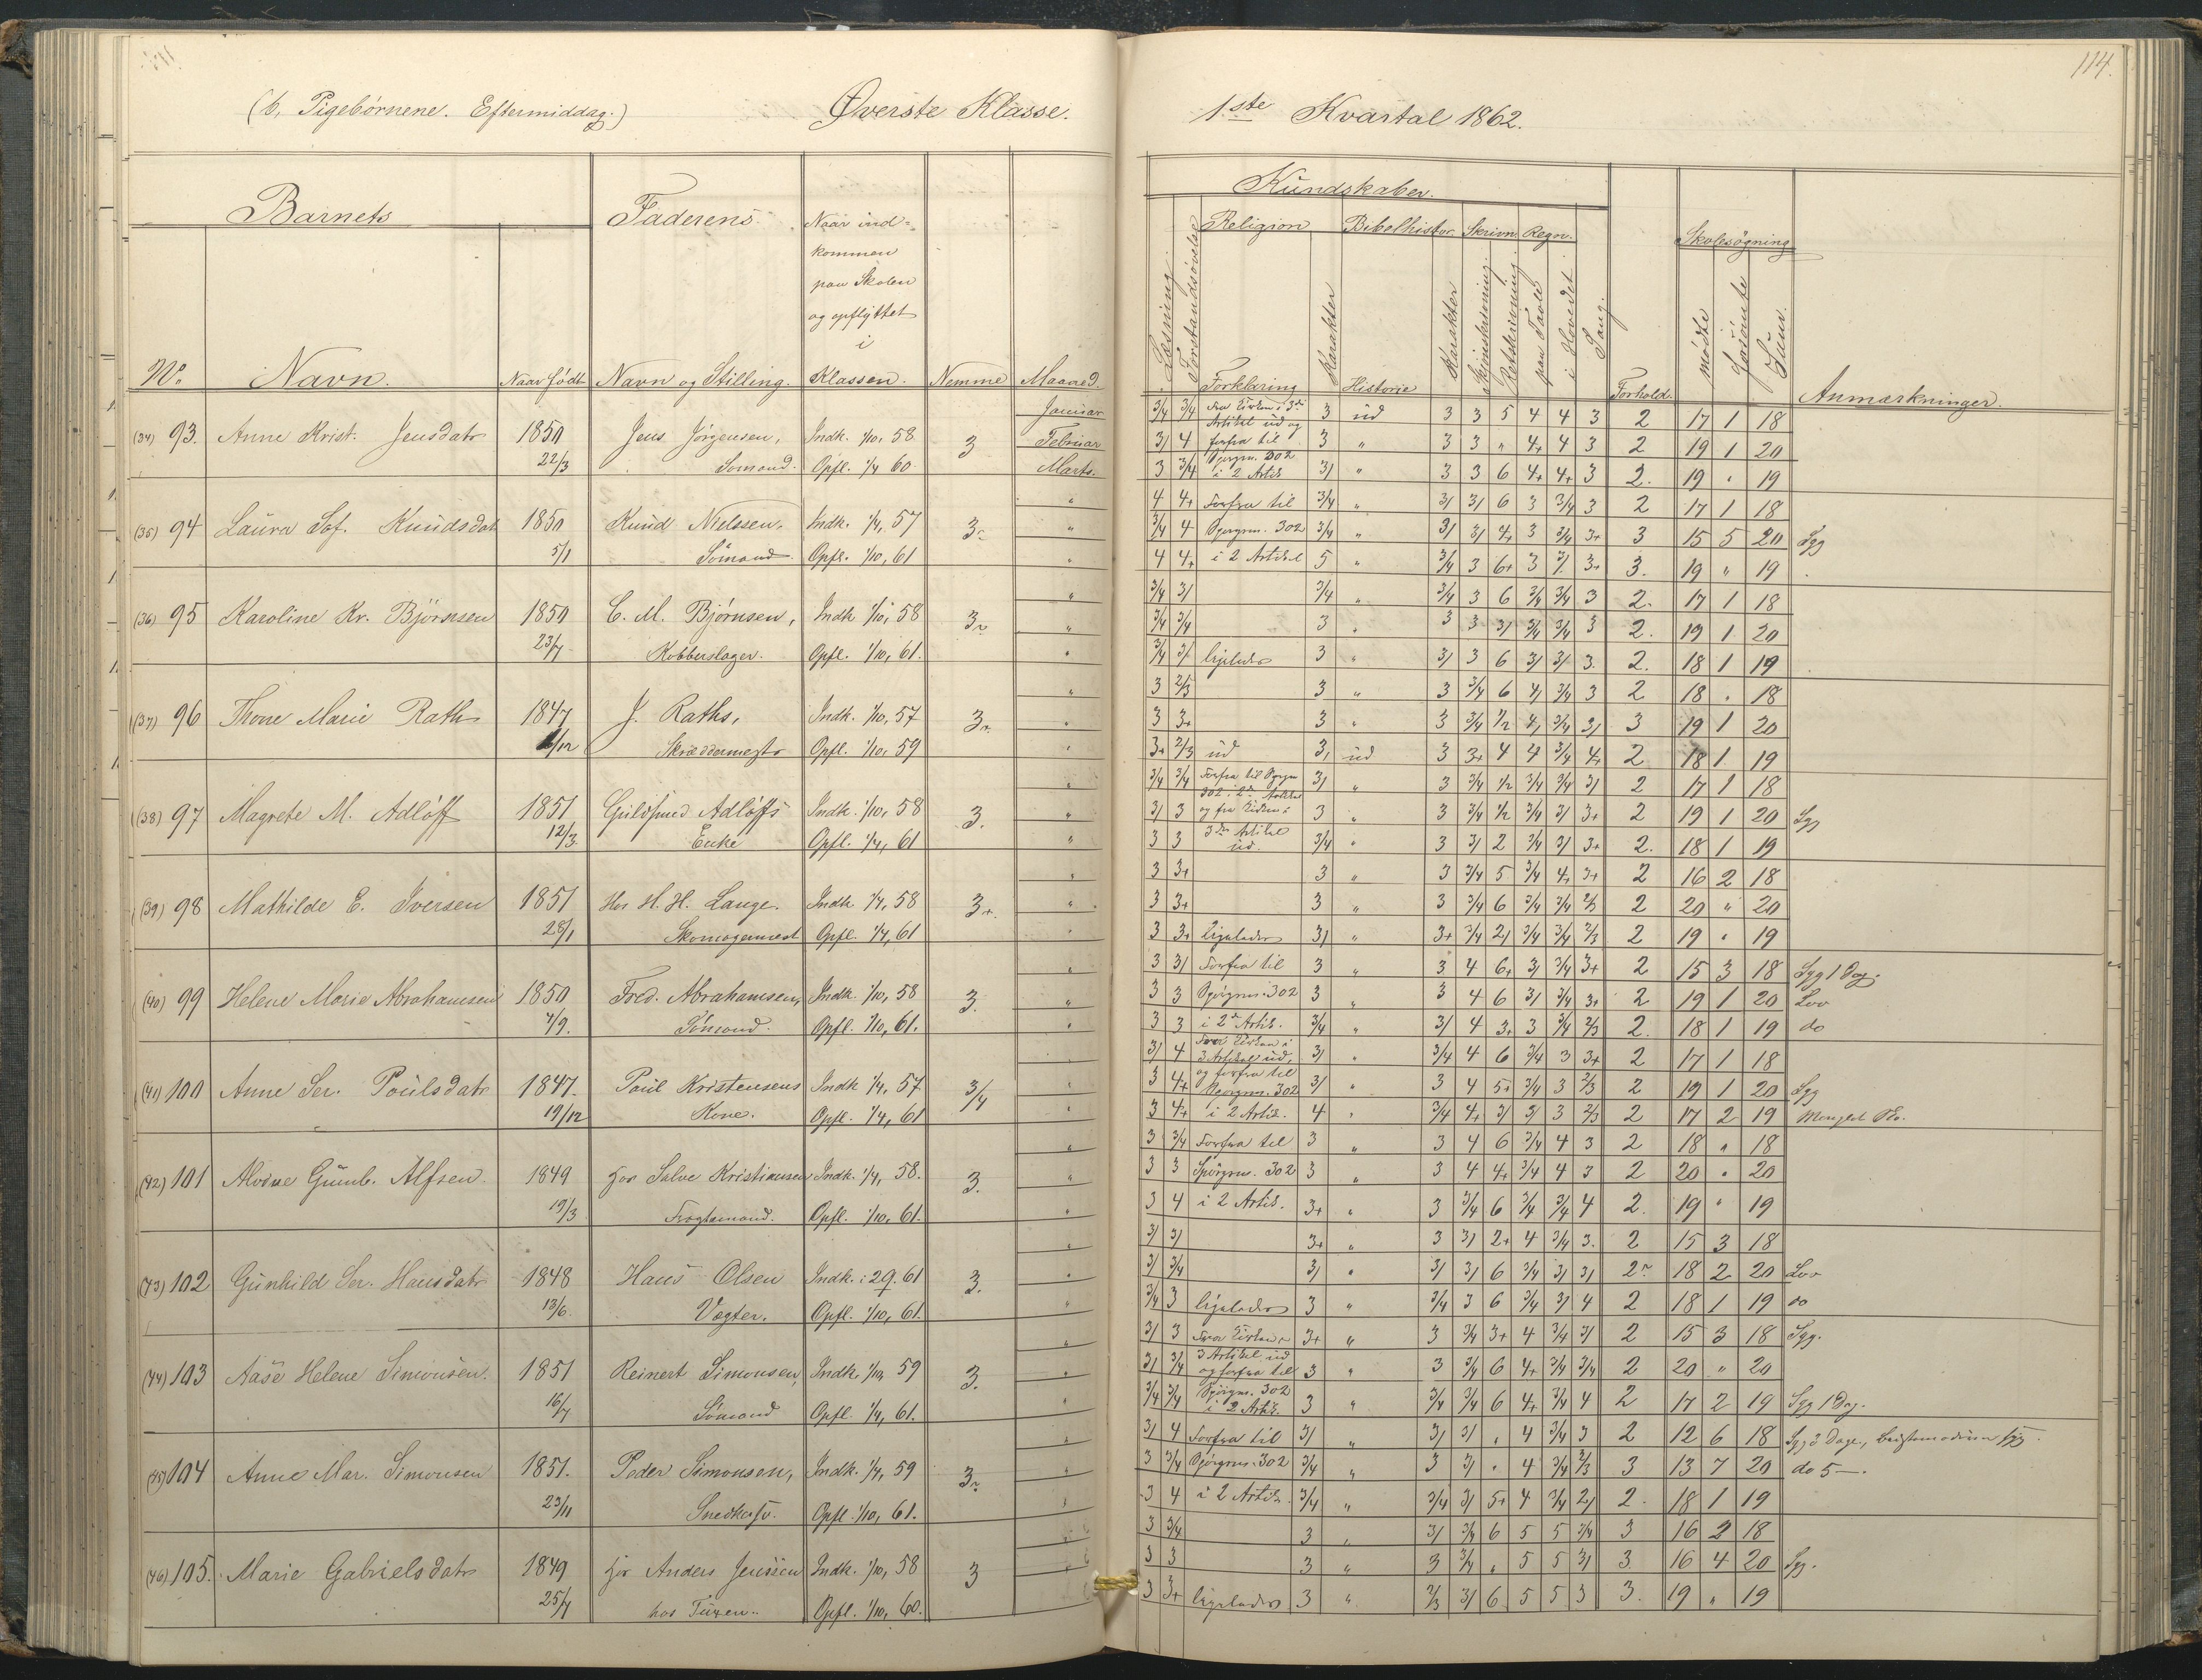 (b, Pigebørnene. Eftermiddag.) Øverste Klasse.
Barnets Faderens Naar ind=
kommen
paa Skolen
og opflyttet
i
No. Navn. Naar født Navn og Stilling. Klassen. Nemme Maaned.
Januar
(34) 93. Anne Krist. Jensdatr 1850 Jens Jørgensen, Indk. 1/10, 58 3 Februar
22/3 Sømand. Opfl. 1/4 60. Marts.
(35) 94 Laura Sof. Knudsdat 1850 Knud Nielssen, Indk. 1/4, 57 3
5/1 Sømand Opfl. 1/10, 61
(36) 95 Karoline Kr. Bjørnsen 1850 C. M. Bjørnsen, Indk 1/10, 58 3
23/7 Kobberslager. Opfl. 1/10, 61.
(37) 96 Thone Marie Raths 1847 J. Raths, Indk. 1/10, 57 3
Skræddermestr Opfl. 1/10, 59
(38) 97 Magrete M. Adløff 1851 Adløffs Indk. 1/10, 58 3.
12/3. Enke Opfl. 1/4, 61
(39) 98 Mathilde E. Iversen 1851 Hos H. H. Lange. Indk 1/4, 58 3+.
28/1 Skomagermest Opfl. 1/4, 61
(40) 99 Helene Marie Abrahamsen 1850 Fred. Abrahamsen, Indk. 1/10, 58 3.
4/9. Sømand. Opfl. 1/10, 61.
(41) 100 Anne Ser. Poulsdatr 1847. Poul Kristensens Indk 1/4, 57 3/4
19/12 Kone. Opfl. 1/4, 61
(42) 101 Gunb. Alfsen. 1849 for Salve Kristiansen Indk. 1/4, 58. 3.
19/3 Fragtemand. Opfl. 1/10, 61.
(43) 102 Gunhild Ser. Hansdatr 1848 Hans Olsen Indk. 61 3.
13/6. Vægter. Opfl. 1/10, 61.
(44) 103 Aase Helene Simonsen. 1851 Reinert Simonsen, Indk. 1/10 59 3.
16/7 Sømand Opfl. 1/4, 61.
(45) 104 Anne Mar. Simonsen 1851. Peder Simonsen, Indk. 1/4, 59 3
23/11 Snedkersv. Opfl. 1/10, 61.
(46) 105. Marie Gabrielsdatr 1849 for Anders Jenssen Indk. 1/10, 58 3
25/7 hos Opfl. 1/10, 60.
114.
1ste Kvartal 1862.
Kundskaber.
Religion Bibelhistor. Skrivn. Regn. Skolesøgning
Læsning. Forstandsøvelse Forklaring Karakter Historie Karakter Skjønskrivning. Retskrivning. paa Tavle i Hovedet. Sang. Forhold. mødte Sum. Anmærkninger.
3/4 3/4 3 ud 3 3 5 4 4 3 2 17 1 18
Artikel ud og
3/ 4 forfra til 3 " 3 3 " 4+ 4 3 2 19 1 20
3 3/4 i 2 Artik 3/ " 3 3 6 4+ 4+ 3 2. 19 " 19
4 4+ Forfra til 3/4 " 3/ 3/ 6 3 3/4 3 2 17 1 18
3/4 4 Spørgsm. 302 3/4 " 3/ 3/ 4+ 3 3/4 3+ 3 15 5 20 Syg
4 4+ i 2 Artikel 5 " 3/4 3 6+ 3 3+ 3. 19 " 19
3/4 3/ 3/4 " 3/4 3 6 3/4 3/4 3 2. 17 1 18
3/4 3/4 3 " 3 3 3/ 3/4 3/4 3 2. 19 1 20
3/4 3/ ligeledes 3 " 3/ 3 6 3/ 3/ 3. 2. 18 1 19
3 2/3 3 " 3 3/4 6 4/ 3/4 3 2 18 " 18
3 3+ 3 " 3 3/4 4/ 3/4 3/ 3 19 1 20
3+ 2/3 ud 3/ ud 3 3+ 4 4 3/4 4+ 2 18 1 19
3/4 3/4 Forfra til Spørgsm 3/ " 3 3/4 3/4 3/4 3/ 2 17 1 18
3/ 3 3 " 3 3/4 3/4 3/ 3+ 2 19 1 20 Syg
3 Artikel
3 3 ud. 3/4 " 3 3/ 2 3/4 3/ 3+ 2. 18 1 19
3 3+ 3 " 3 3/4 5 3/4 4+ 3+ 2 16 2 18
3 3+ 3 " 3 3/4 6 3/4 3/4 2/3 2 20 " 20
3 3+ ligeledes 3/ " 3+ 3/4 2/ 3/4 3/4 2/3 2 19 " 19
3 3/ Forfra til 3 " 3 4 6+ 3/ 3/4 3+ 2 15 3 18 Syg 1 Dag.
3 3 Spørgsm. 302 3 " 3 4 6 3/ 3/4 3+ 2 19 1 20 Lov
3 3 i 2 Artik. 3/4 " 3/ 4 3+ 3 3/4 2/3 2. 18 1 19 do
3/ 4 3 Artikel ud, 3/ " 3/4 4 6 3/4 3 3+ 2 17 1 18
og forfra til
3 4+ Spørgsm. 302 3/ " 3 4 5+ 3/4 3 2/3 2 19 1 20 Syg
3 4+ i 2 Artik. 4 " 3/4 4+ 3/ 3/ 3 2/3 2 17 2 19
3 3/4 Forfra til 3 " 3 4 6 3/4 4 3 2 18 " 18
3 3 Spörgsm. 302 3 " 3 4 4+ 3/4 4 3 2 20 " 20
3 4 i 2 Artik. 3+ " 3 3/4 6 3/4 3/4 4 2. 19 " 19
3/ 3/ 3+ " 3 3/ 2+ 4 3/4 3. 2 15 3 18
3/ 3/4 3/ " 3/ 3/ 6 3/4 3/ 3/ 2 18 2 20 Lov
3/4 3 ligeledes 3 " 3/4 3 6 3/4 3/ 4 2 18 1 19 do
3/ 3 3+ " 3 3/4 3+ 4 3/4 3/ 2 15 3 18 Syg.
3 Artikel ud
3/ 3/4 og forfra til 3 " 3 3/4 6 4+ 3/4 3/4 2 20 " 20
Spörgsm. 302
3/4 3/4 i 2 Artk. 3 " 3/4 3/4 6 4+ 3/4 4 2 17 2 19 Syg 1 Dag.
3/ 4 Forfra til 3/ " 3/ 3/ " 4 3/4 3 2 12 6 18 Syg 3 Dage,
3 3/4 Spörgsm. 302 3/4 " 3 3/ " 4 3/4 2/3 3 13 7 20 do 5 —.
3 4 i 2 Artik. 3/4 " 3/4 3/ 5+ 4 3/4 2/ 2. 18 1 19
3 3/4 3 " 3/ 3/4 6 5 5 3/4 3 16 2 18
3 3 3 " 3 3/4 " 5 5 3/ 3 16 4 20 Syg.
3 3+ ligeledes 3 " 2/3 3/ 6 5 5 3 3. 19 " 19